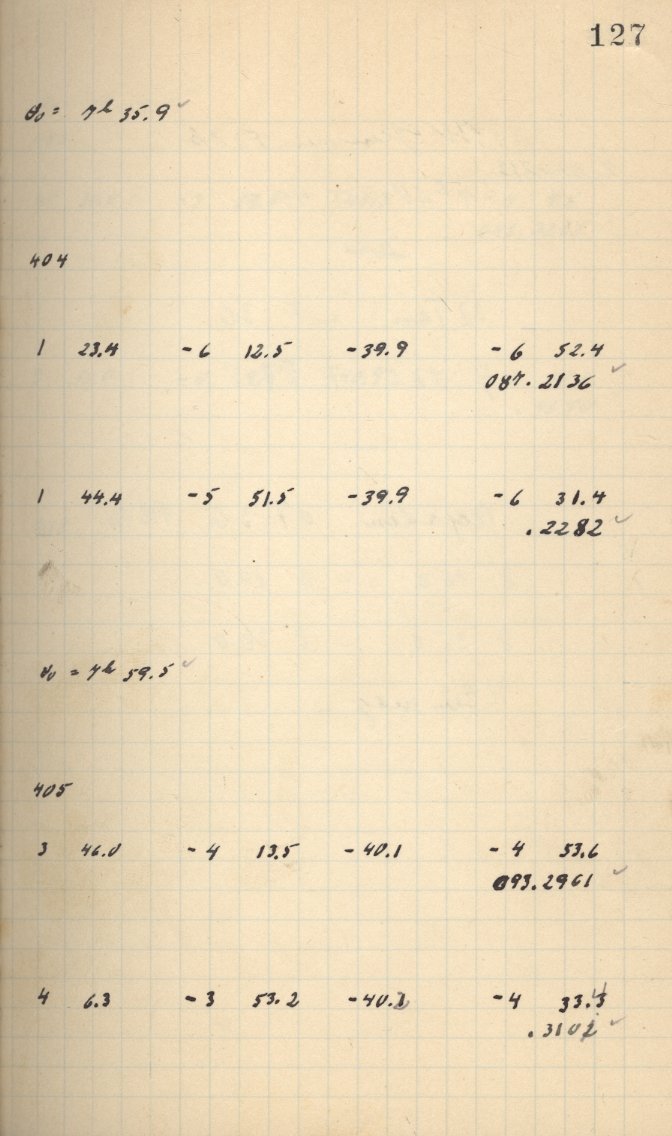 127
θ₀ = 7ʰ 35.9 ✓
404
1 23.4 -6 12.5 -39.9 -6 52.4
087.2136 ✓
1 44.4 -5 51.5 -39.9 -6 31.4
.2282 ✓
θ₀ = 7ʰ 59.5 ✓
405
3 46.0 -4 13.5 -40.1 -4 53.6
093.2961 ✓
4 6.3 -3 53.2 -40.2 -4 33.4
.3102 ✓